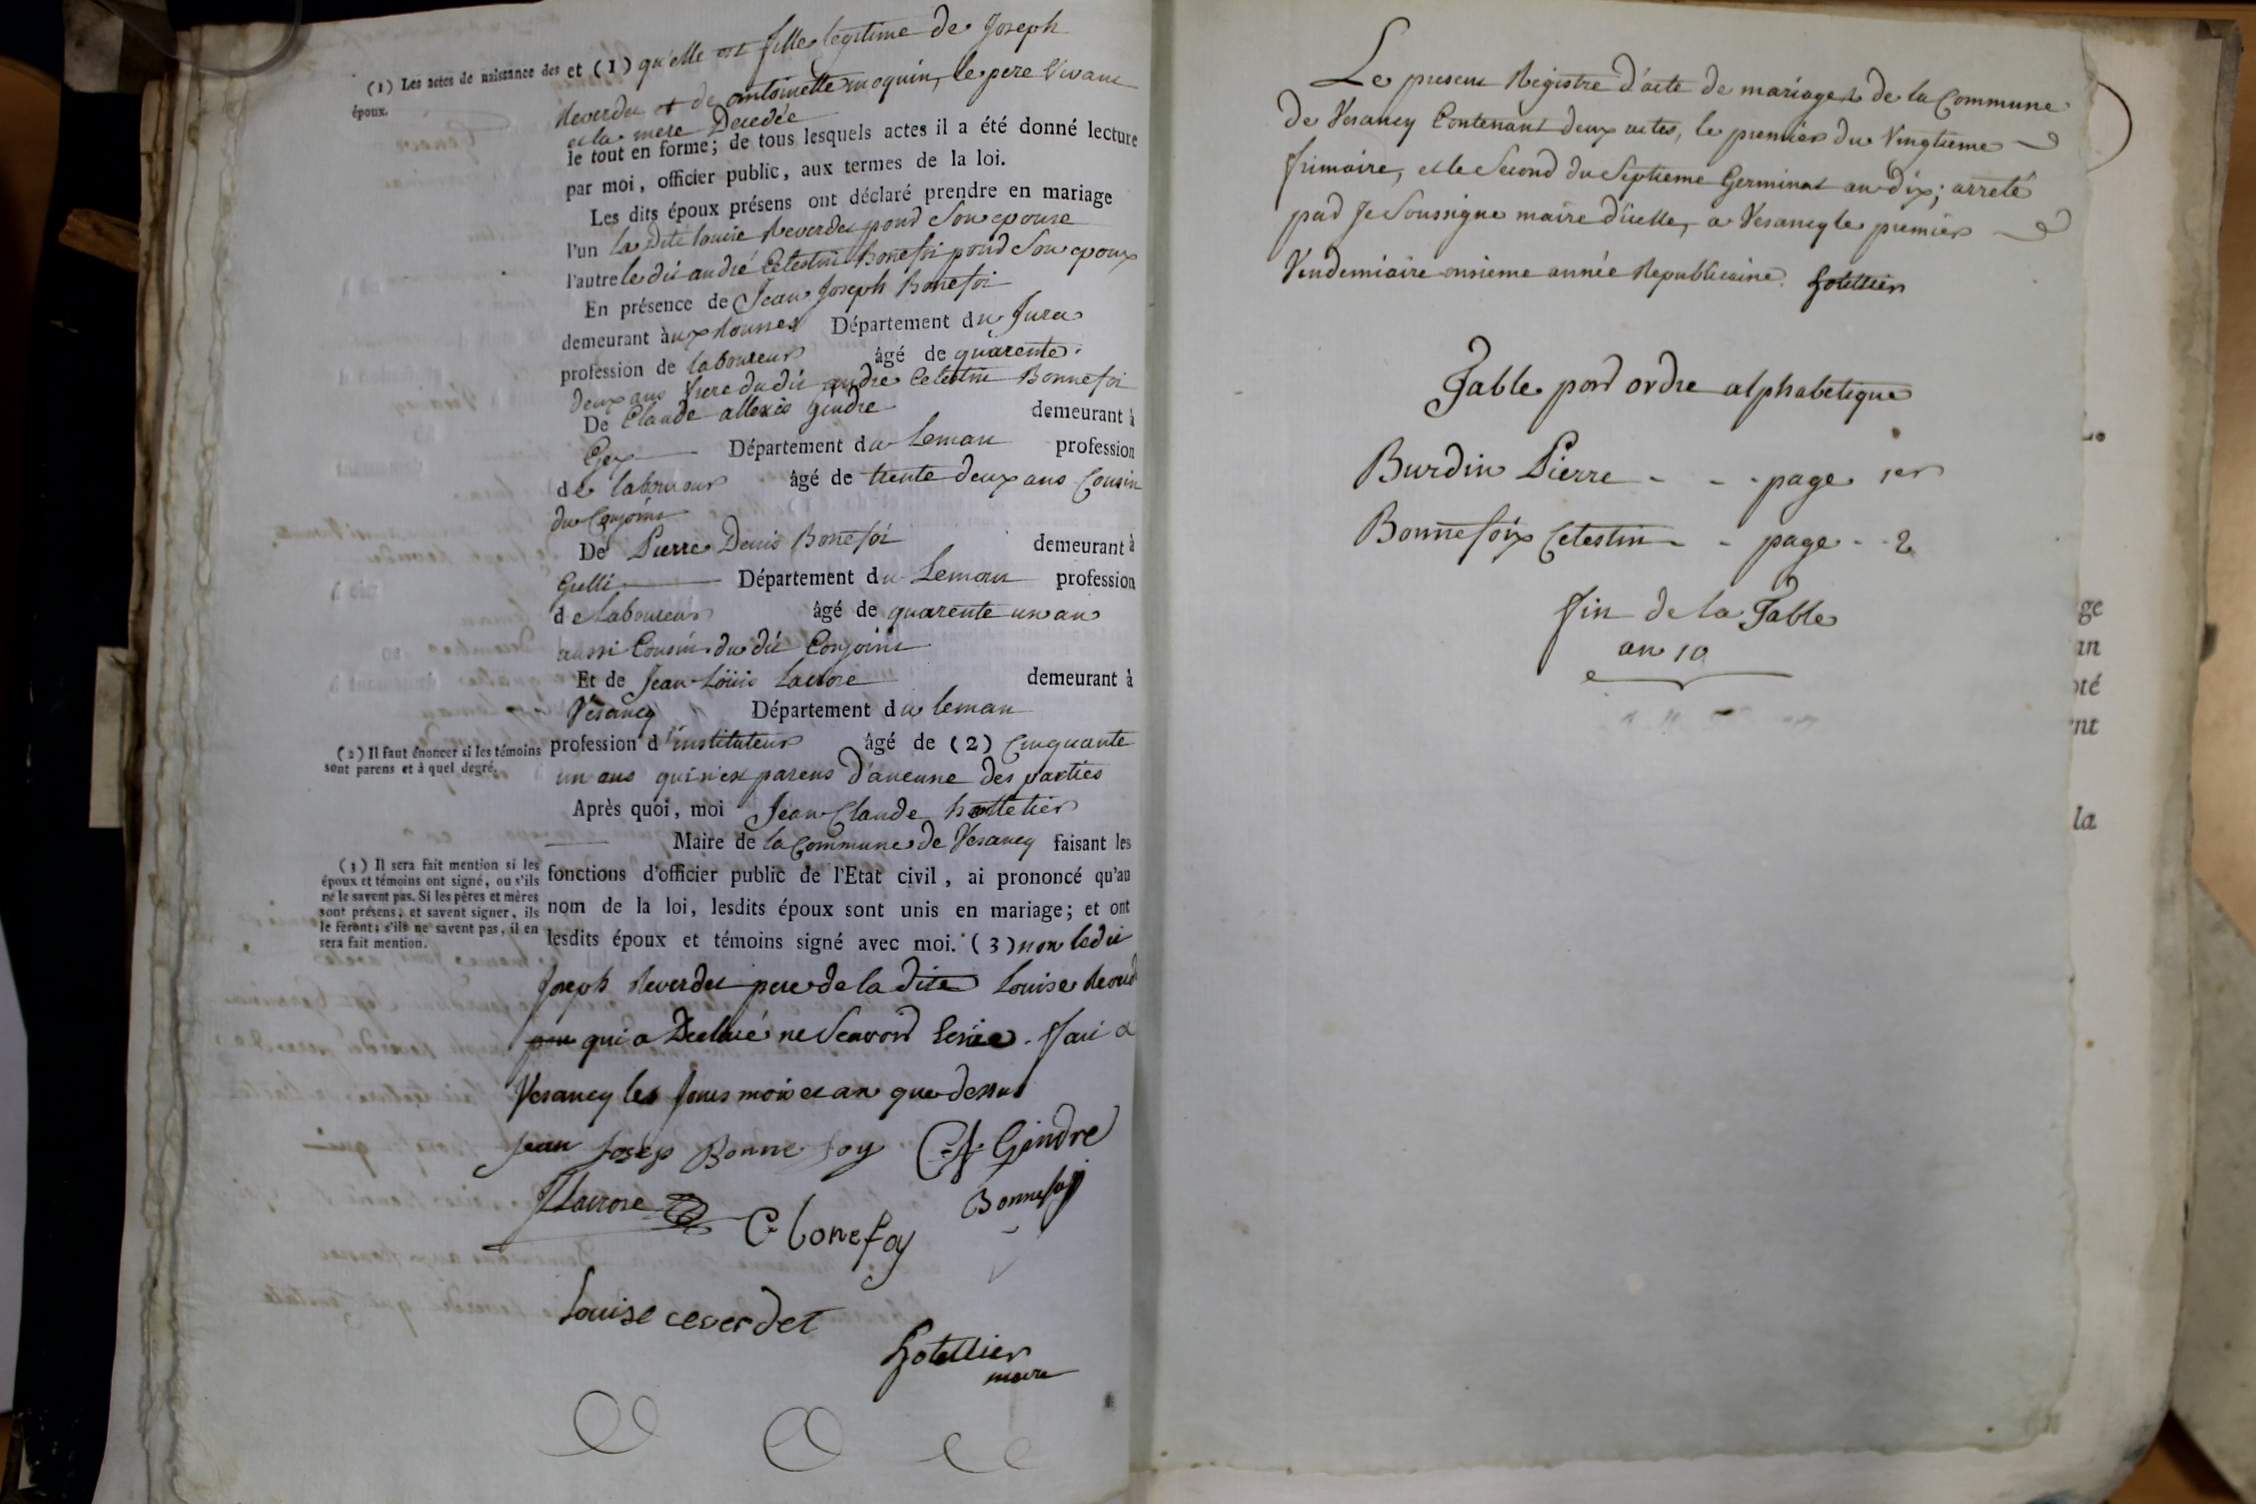 (1) Les actes de naissance des
époux.
et (1) qu'elle est fille legitime de Joseph
Reverdet et de antoinette moquin, le pere Vivant
et la mere Decedée
le tout en forme; de tous lesquels actes il a été donné lecture
par moi, officier public, aux termes de la loi.
Les dits époux présens ont déclaré prendre en mariage
l'un la dite louise Reverdet pour Son epouse
l'autre le dit andré Celestin Bonefoi pour Son epoux
En présence de Jean Joseph Bonefoi
demeurant à ux Rousses Département du Jura
profession de laboureur âgé de quarente
deux ans frere du dit andre Celestin Bonnefoi
De Claude allexis Gindre demeurant à
Gex Département du Leman profession
de laboureur âgé de trente deux ans Cousin
du Conjoint
De Pierre Denis Bonefoi demeurant à
Gilli Département du Leman profession
de Laboureur âgé de quarente un an
aussi Cousin du dit Conjoint
Et de Jean Loüis Lacroze demeurant à
Vesancy Département du leman
(2) Il faut énoncer si les témoins
sont parens et à quel degré.
profession d'instituteur âgé de (2) Cinquante
un ans qui n'est parens d'aucune des parties
Après quoi, moi Jean Claude hottelier
Maire de la Commune de Vesancy faisant les
(3) Il sera fait mention si les
époux et témoins ont signé, ou s'ils
ne le savent pas. Si les pères et mères
sont présens, et savent signer, ils
le feront; s'ils ne savent pas, il en
sera fait mention.
fonctions d'officier public de l'Etat civil, ai prononcé qu'au
nom de la loi, lesdits époux sont unis en mariage; et ont
lesdits époux et témoins signé avec moi. (3) non ledit
Joseph Reverdet pere de la dite Louise
qui a Declaré ne Scavoir . fait a
Vesancy les Jours mois et an que dessus
Jean Josep Bonne foy CA Gindre
JLacroze Bonnefoy
C bonefoy
Louise reverdet
hotellier
maire
Le present Registre d'acte de mariages de la Commune
de Vesancy Contenant deux actes, le premier du Vingtieme
frimaire, et le Second du Septieme Germinal an dix; arreté
par Je Soussigne maire d'icelle, a Vesancy le premier
Vendemiaire onsieme année Republicaine. hotellier
Table par ordre alphabetique
Burdin Pierre - - - page 1er
Bonnefoix Celestin - - page - - 2
fin de la Table
an 10
ge
an
oté
ent
la